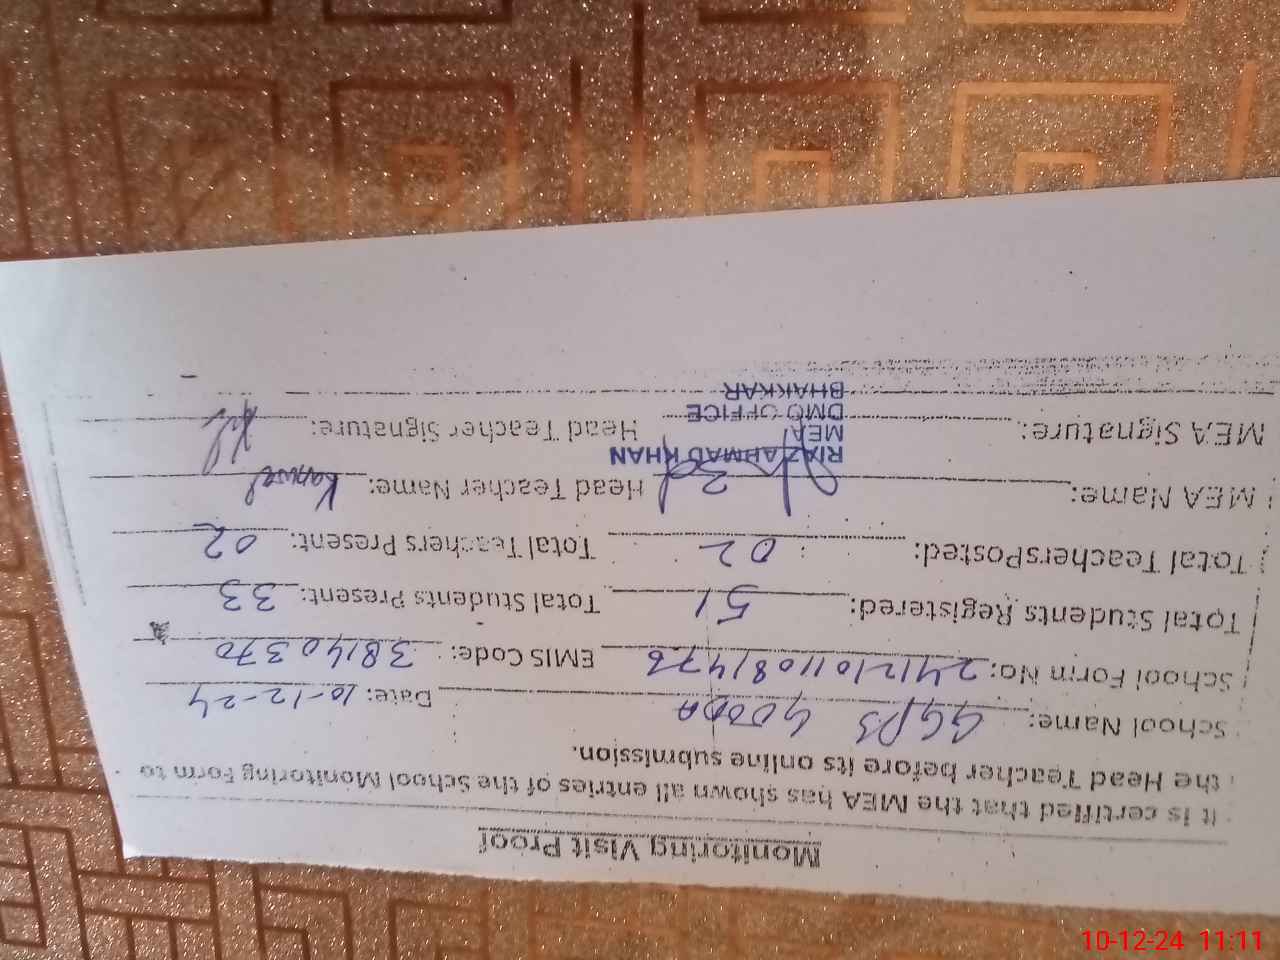 Monitoring Visit Proof
It is certified that the MEA has shown all entries of the School Monitoring Form to
the Head Teacher before its online submission.
School Name: GGPS GOODA Date: 10-12-24
School Form No: EMIS Code: 38140370
Total Students Registered: 51 Total Students Present: 33
Total Teachers Posted: 02 Total Teachers Present: 02
MEA Name: Head Teacher Name: Kanwal
RIAZ AHMAD KHAN
MEA
MEA Signature: DMO OFFICE Head Teacher Signature:
BHAKKAR
10-12-24 11:11